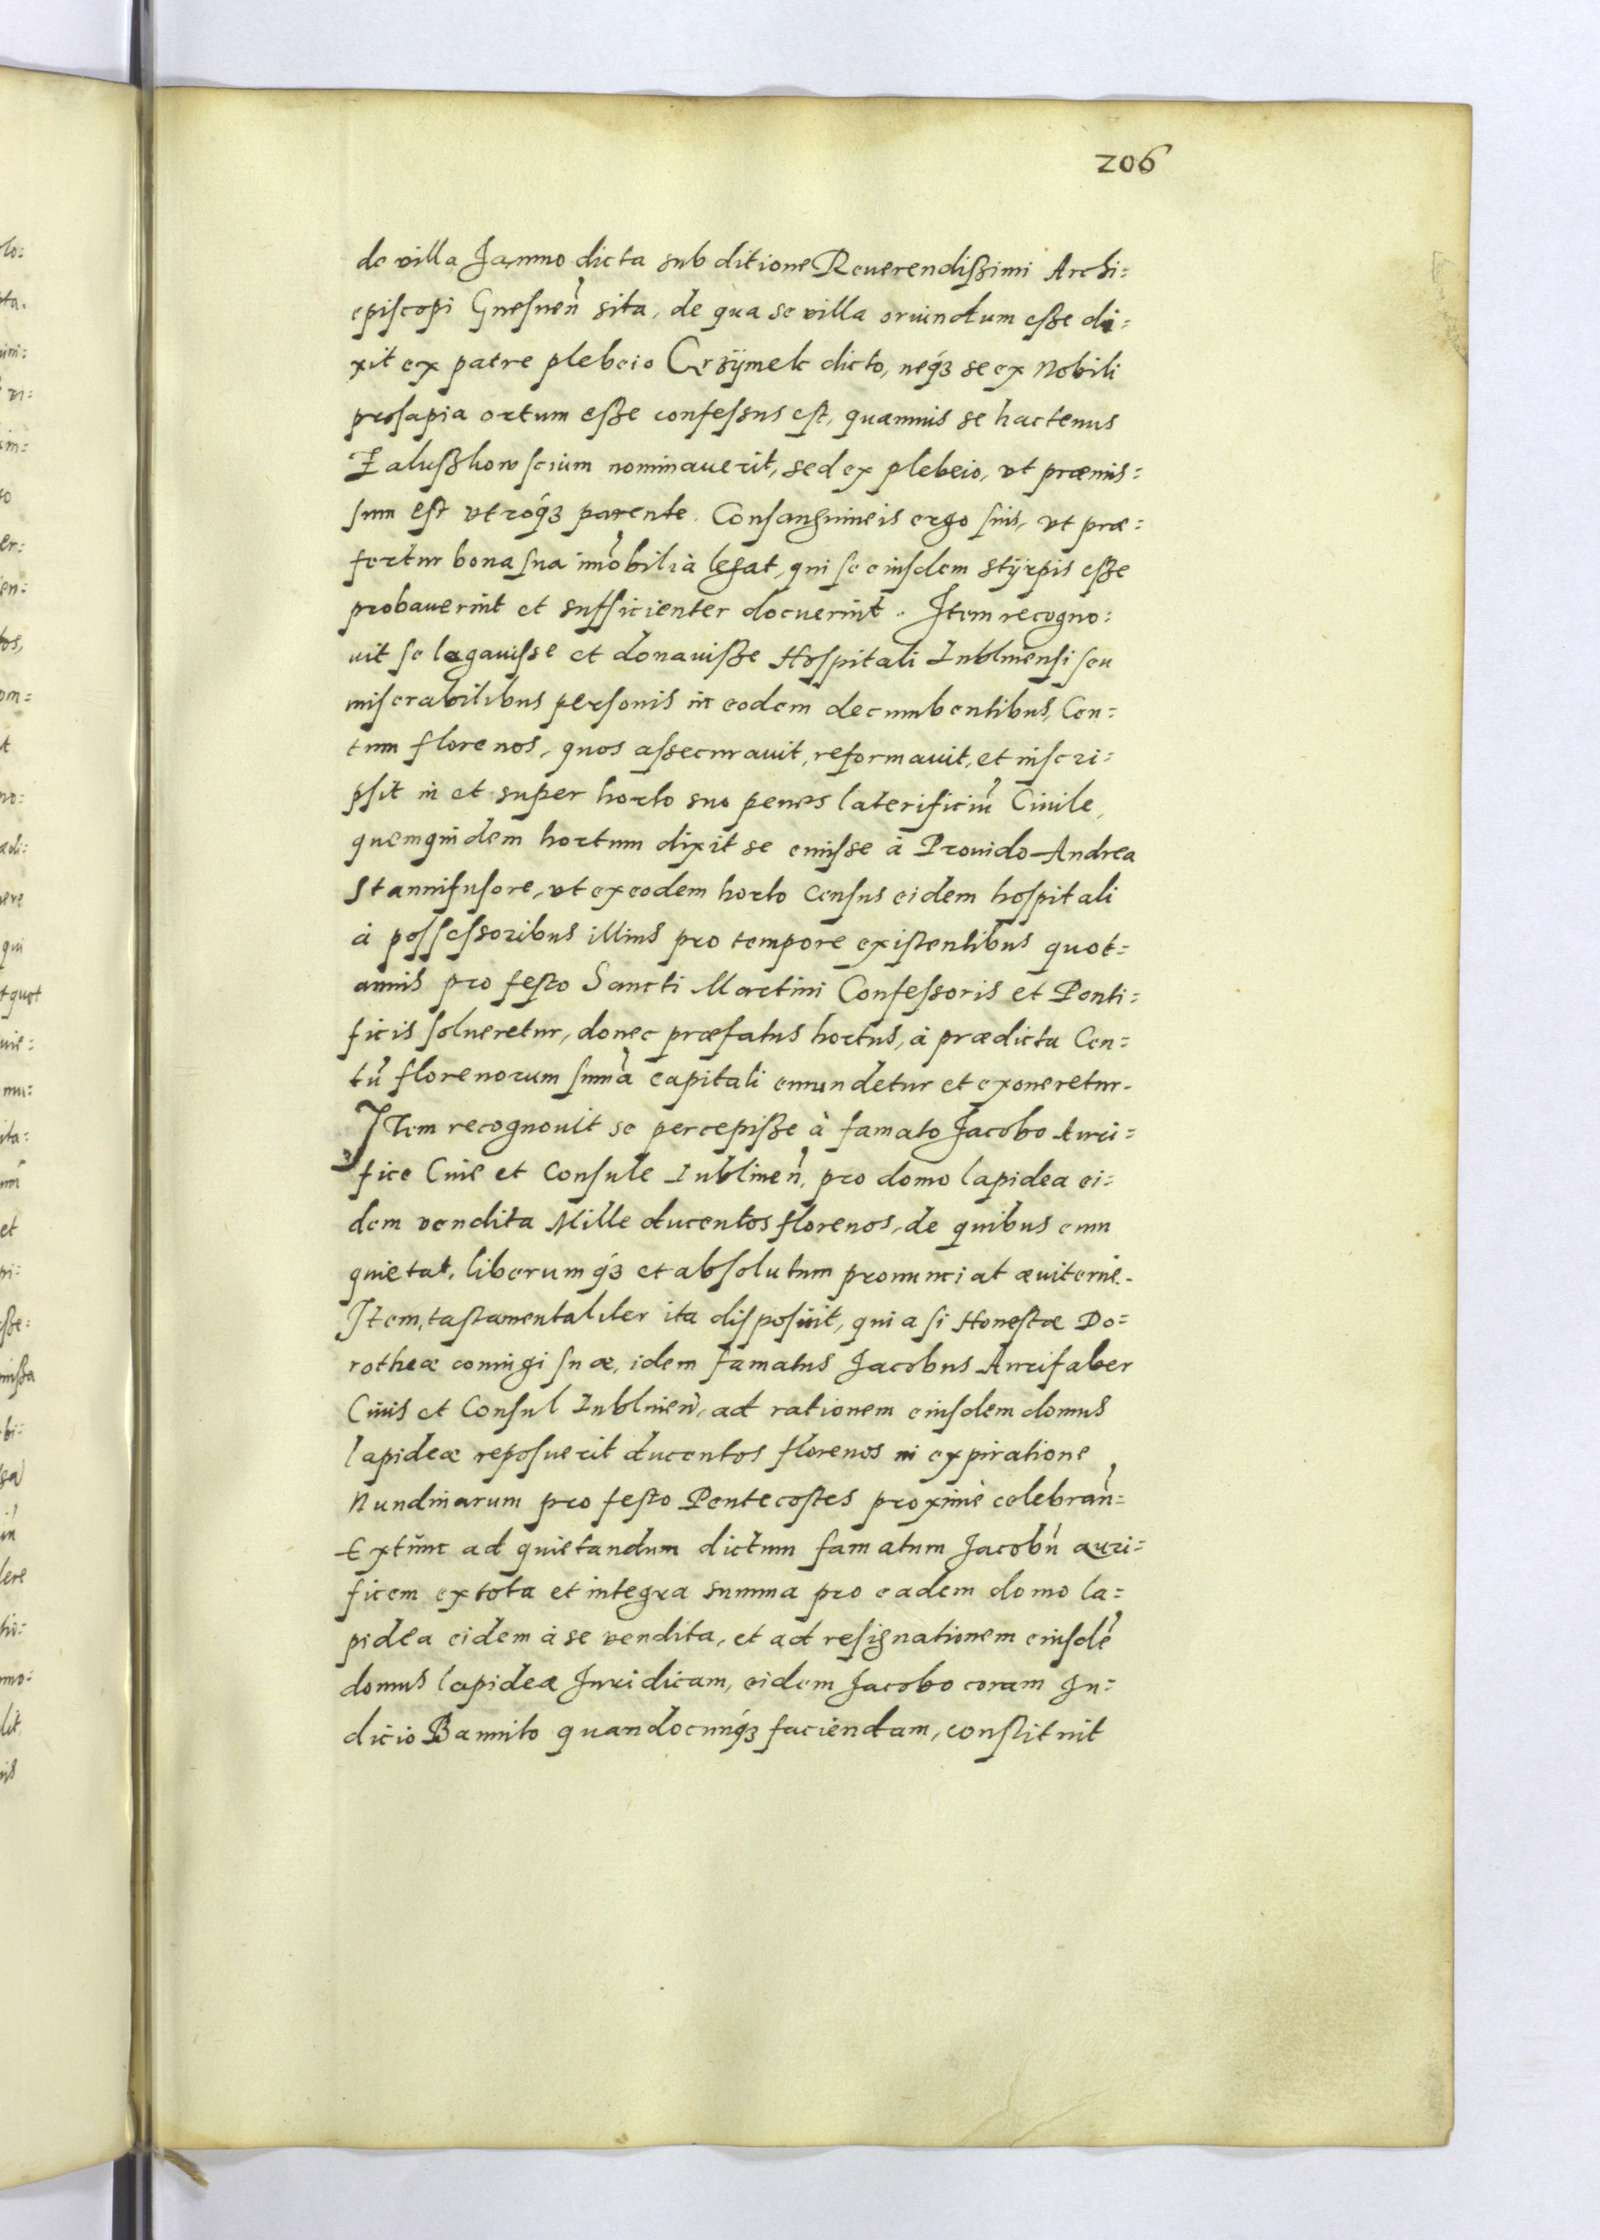 206
de villa Janno dicta sub ditione Reuerendißimi Archi=
episcopi Gnesnen̄ sita, de qua se villa oriundum eße di=
xit ex patre plebeio dicto, neq́ꝫ se ex Nobili
prosapia ortum eße confessus est, quamuis se hactenus
Zalußkowscium nominauerit, sed ex plebeio, vt præmis=
sum est vtroq́ꝫ parente. Consanguineis ergo suis, vt præ=
fertur bona sua im̄obilia legat, qui se eiusdem styrpis eße
probauerint et sufficienter docuerint. Item recogno=
uit se legauisse et donauiße Hospitali Lublinensi seu
miserabilibus personis in eodem decumbentibus, Cen=
tum florenos, quos assecurauit, reformauit, et inscri=
psit in et super horto suo penes laterificiū Ciuile,
quemquidem hortum dixit se emisse à Prouido Andrea
Stannifusore, vt ex eodem horto census eidem hospitali
à possessoribus illius pro tempore existentibus quot=
annis pro festo Sancti Martini Confessoris et Ponti=
ficis solueretur, donec præfatus hortus, à prædicta Cen=
tū florenorum sum̄a capitali emundetur et exoneretur.
Item recognouit se percepiße à famato Jacobo Auri=
fice Ciue et Consule Lublinen̄, pro domo lapidea ei=
dem vendita Mille ducentos florenos, de quibus eum
quietat, liberumq́ꝫ et absolutum pronunciat æuiterne.
Item, tastamentaliter ita disposuit, quia si Honestæ Do=
rotheæ coniugi suæ, idem famatus Jacobus Aurifaber
Ciuis et Consul Lublinen̄, ad rationem eiusdem domus
lapideæ reposuerit ducentos florenos in expiratione
Nundinarum pro festo Pentecostes proximè celebran̄=
Extunc ad quietandum dictum famatum Jacobū auri=
ficem ex tota et integra summa pro eadem domo la=
pidea eidem à se vendita, et ad resignationem eiusdē
domus lapideæ Juridicam, eidem Jacobo coram Ju=
dicio Bannito quandocunq́ꝫ faciendam, constituit